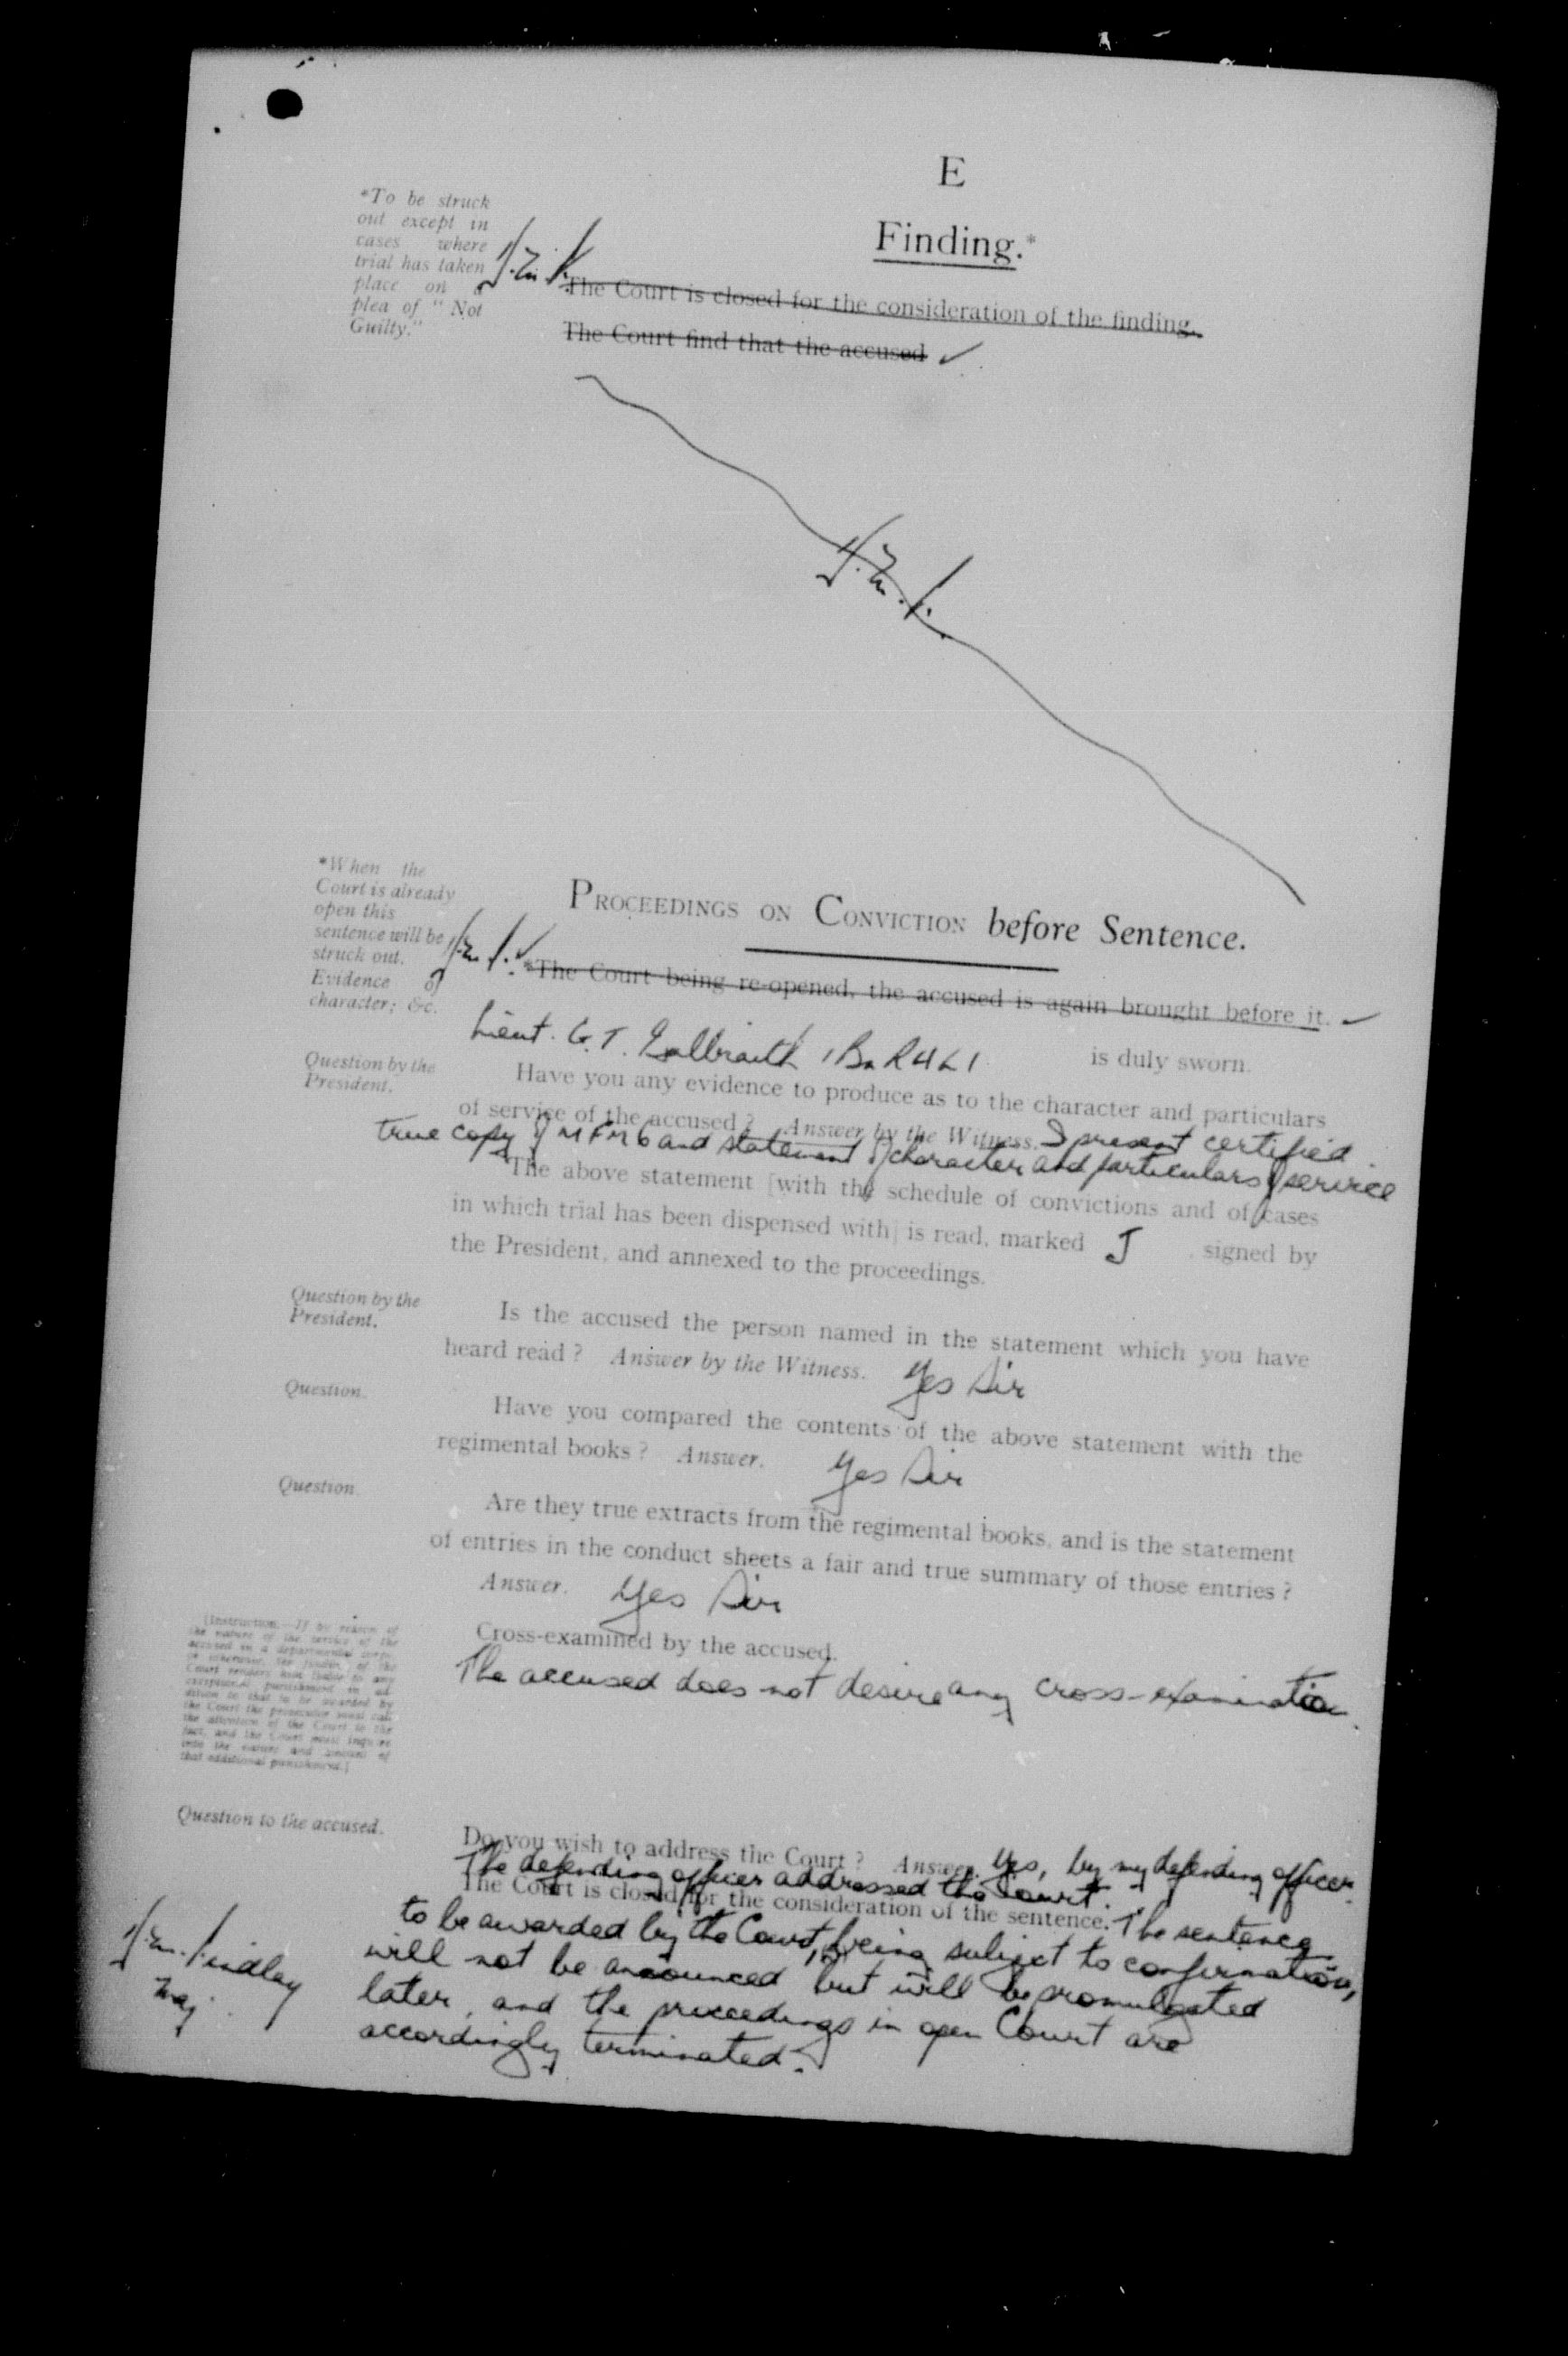 E
Finding.*
*To be struck
out except in
cases where
trial has taken
place on a
plea of "Not
Guilty."
The Court is closed for the consideration of the finding.
The Court find that the accused ✓
*When the
Court is already
open this
sentence will be
struck out.
Evidence of
character; &c.
PROCEEDINGS ON CONVICTION before Sentence.
*The Court being re-opened, the accused is again brought before it. ✓
Lieut. G. T. Galbraith 1 Bn RHLI is duly sworn.
Question by the
President.
Have you any evidence to produce as to the character and particulars
of service of the accused? Answer by the Witness. I present certified
true copy of MFM 6 and statement of character and particulars of service
The above statement [with the schedule of convictions and of cases
in which trial has been dispensed with] is read, marked J signed by
the President, and annexed to the proceedings.
Question by the
President.
Is the accused the person named in the statement which you have
heard read? Answer by the Witness. Yes Sir
Question.
Have you compared the contents of the above statement with the
regimental books? Answer. Yes Sir
Question.
Are they true extracts from the regimental books, and is the statement
of entries in the conduct sheets a fair and true summary of those entries?
Answer. Yes Sir
Cross-examined by the accused.
The accused does not desire any cross-examination.
[Instruction.—If by reason of
the nature of the service of the
accused in a departmental corps,
or otherwise, the finding of the
Court renders him liable to any
exceptional punishment in ad-
dition to that to be awarded by
the Court the prosecutor must call
the attention of the Court to the
fact, and the Court must inquire
into the nature and amount of
that additional punishment.]
Question to the accused.
Do you wish to address the Court? Answer. Yes, by my defending officer.
The defending officer addressed the Court.
The Court is closed for the consideration of the sentence. The sentence
to be awarded by the Court, being subject to confirmation,
will not be announced but will be promulgated
later, and the proceedings in open Court are
accordingly terminated.
Findlay
Maj.